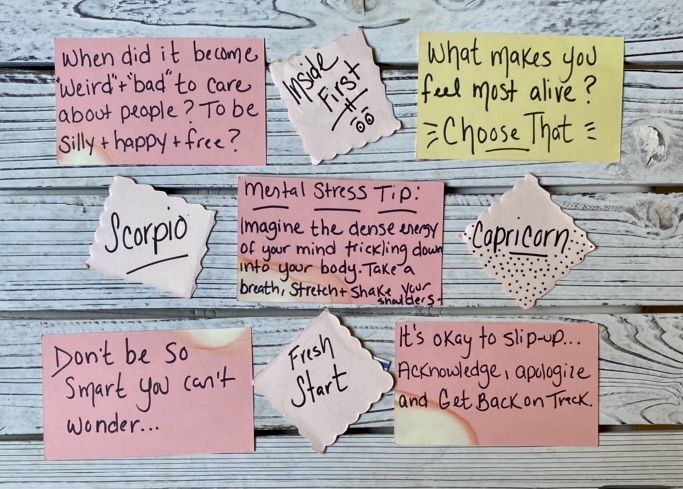 When did it become
"weird" + "bad" to care
about people? To be
silly + happy + free?
Inside
First
What makes you
feel most alive?
Choose That
Scorpio
Mental Stress Tip:
Imagine the dense energy
of your mind trickling down
into your body. Take a
breath, Stretch + Shake your
shoulders.
Capricorn
Don't be so
Smart you can't
wonder...
Fresh
Start
It's okay to slip-up...
Acknowledge, apologize
and Get Back on Track.